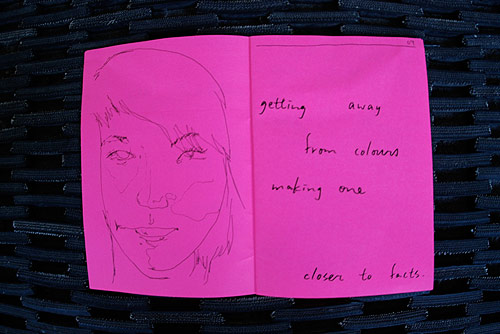 09
getting away
from colours
making one
closer to facts.